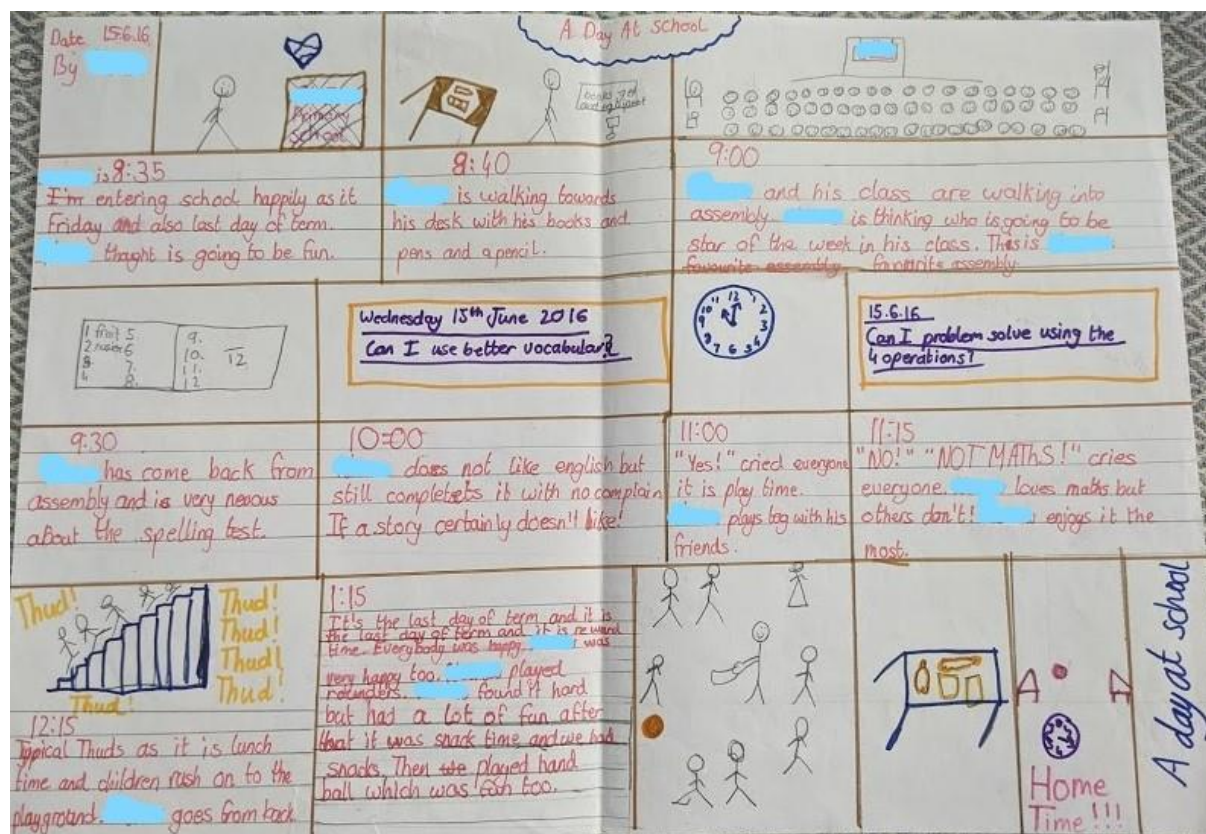 A Day At School
Date 15.6.16
By
Primary
School
books and
is 8:35
I'm entering school happily as it
Friday and also last day of term.
thaght is going to be fun.
8:40
is walking towards
his desk with his books and
pens and a pencil.
9:00
and his class are walking into
assembly. is thinking who is going to be
star of the week in his class. This is
favourite assembly. favourite assembly.
1 fruit 5
2 6
3 7.
4 8.
9.
10.
11.
12
12
Wednesday 15th June 2016
Can I use better vocabulary?
11 12 1
10 2
9 3
8 4
7 6 5
15.6.16
Can I problem solve using the
4 operations?
9:30
has come back from
assembly and is very nevous
about the spelling test.
10:00
does not like english but
still completets it with no complain
If a story certainly doesn't like!
11:00
"Yes!" cried everyone
it is play time.
plays tag with his
friends.
11:15
"NO!" "NOT MATHS!" cries
everyone. loves maths but
others don't! enjoys it the
most.
Thud!
Thud!
Thud!
Thud!
Thud!
Thud!
12:15
Typical Thuds as it is lunch
time and children rush on to the
playground. goes from back
1:15
It's the last day of term and it is
the last day of term and it is reward
time. Everybody was happy. was
very happy too. played
rounders. found it hard
but had a lot of fun after
that it was snack time and we had
snacks. Then we played hand
ball which was too.
Home
Time!!!
A day at school